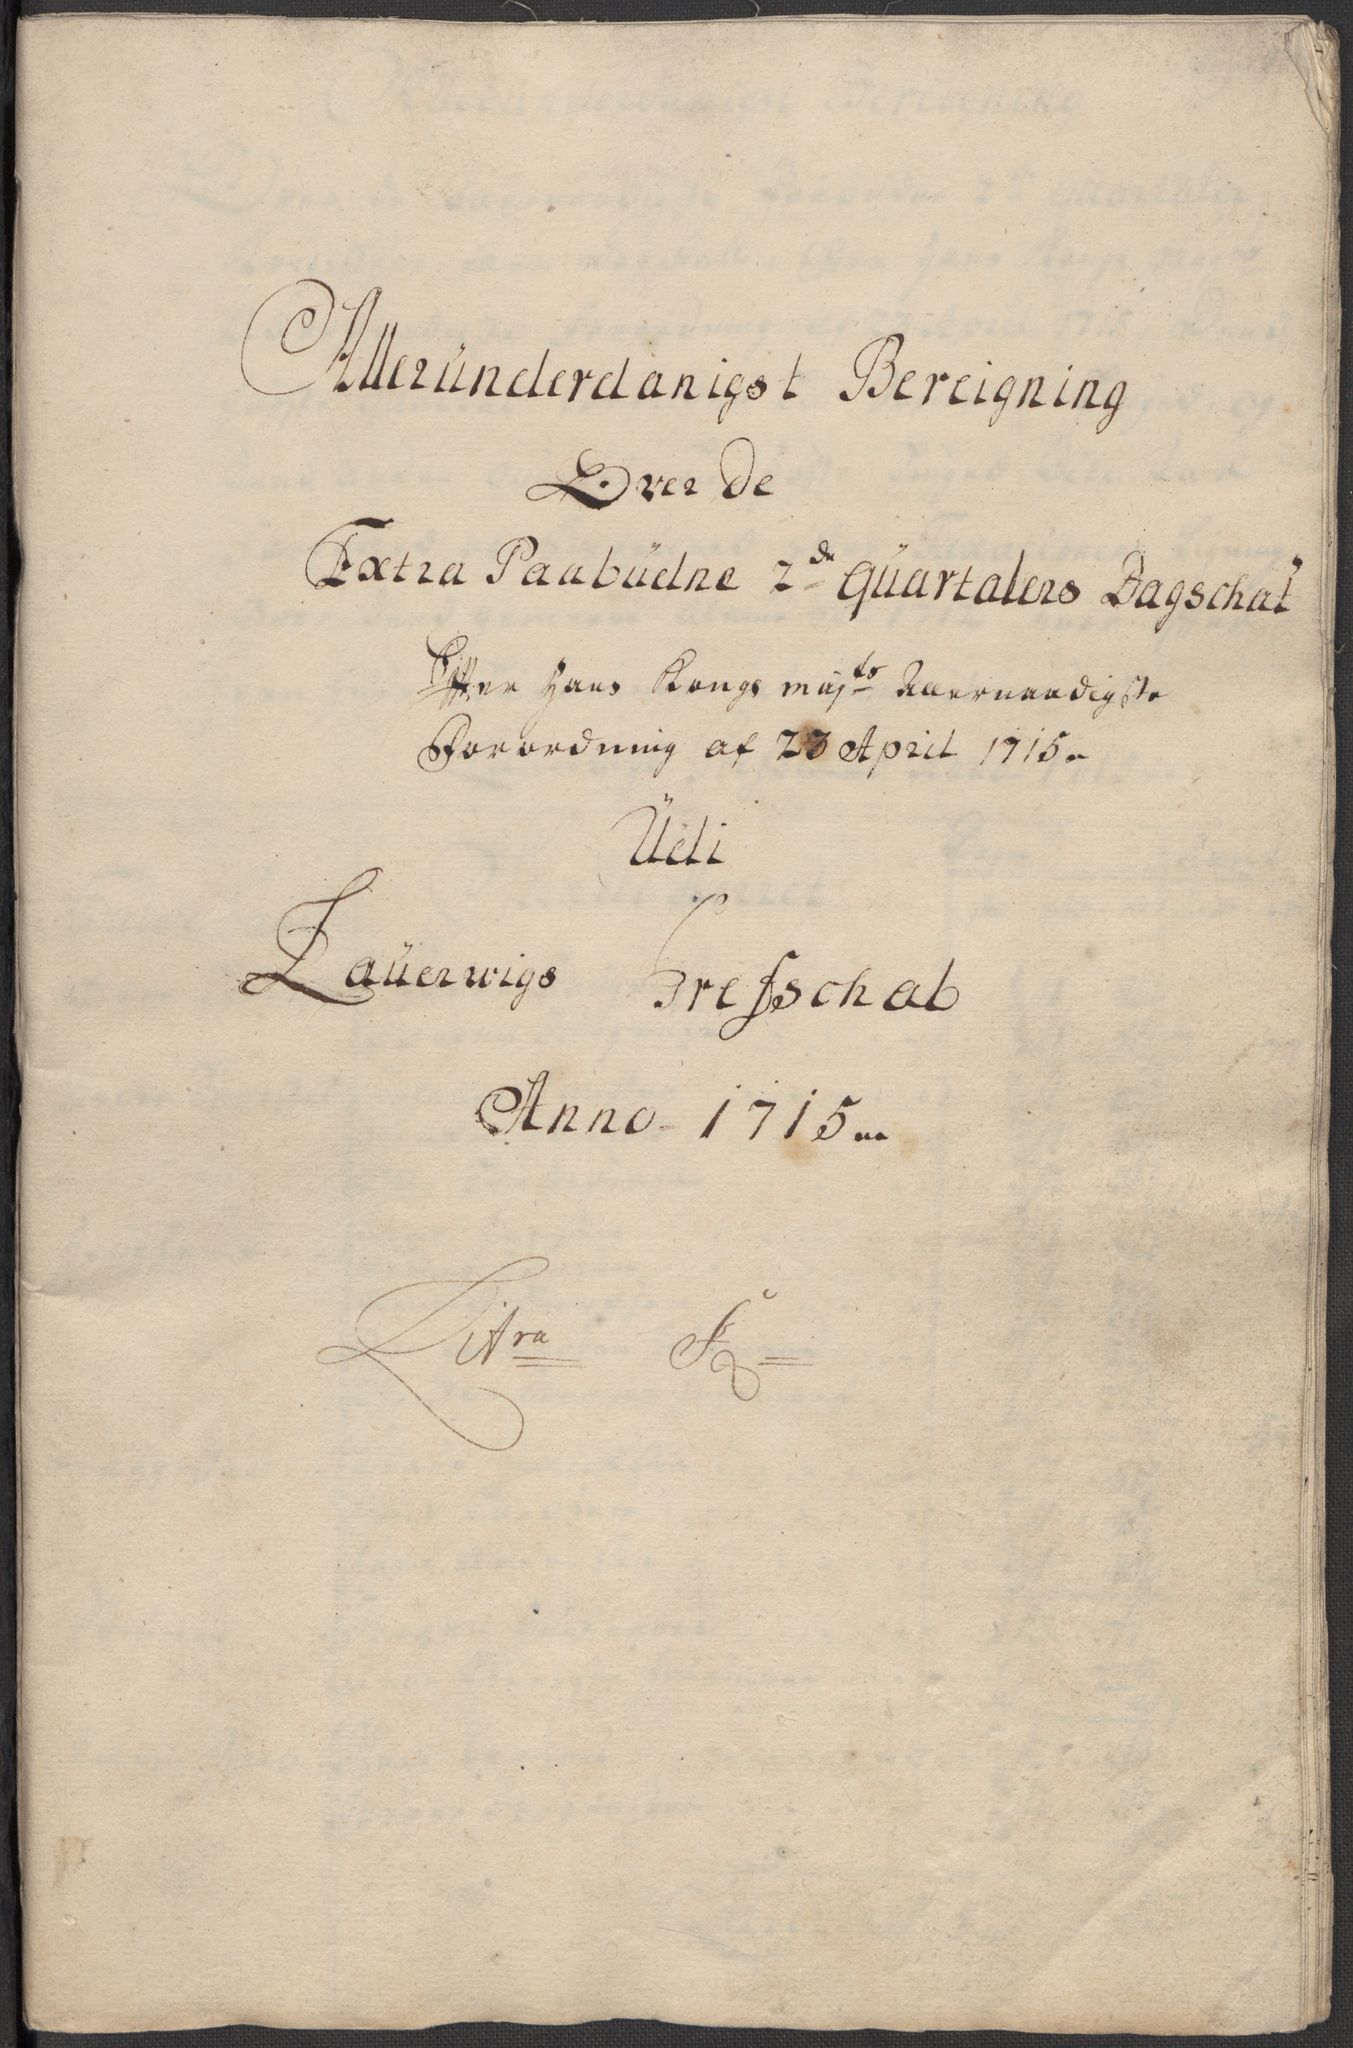 Alleründerdanigst Bereigning
Over De
Extra Paabüdne 2de Qüartalers Dagschat
Effter Hans Kongs maj:ts Allernaadigste
Forordning af 23 April 1715
Üdi
Laüerwigs Grefschab
Anno 1715
Litra F